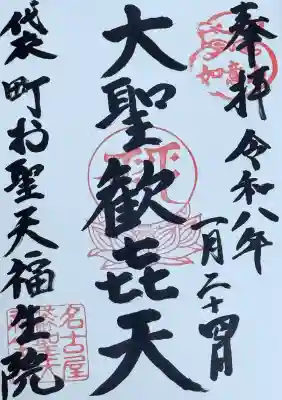 奉拝 令和八年
一月二十四日
大聖歡喜天
袋町お聖天福生院
如意
名古屋